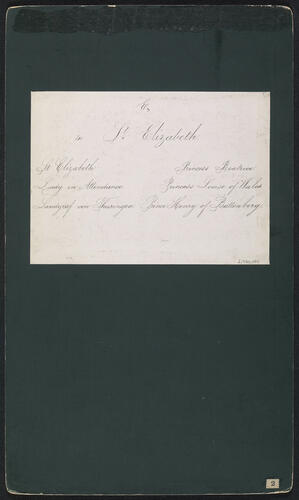 St Elizabeth
St Elizabeth Princess Beatrice
Lady in Attendance Princess Louise of Wales
Landgraf von Thuringen Prince Henry of Battenberg
2